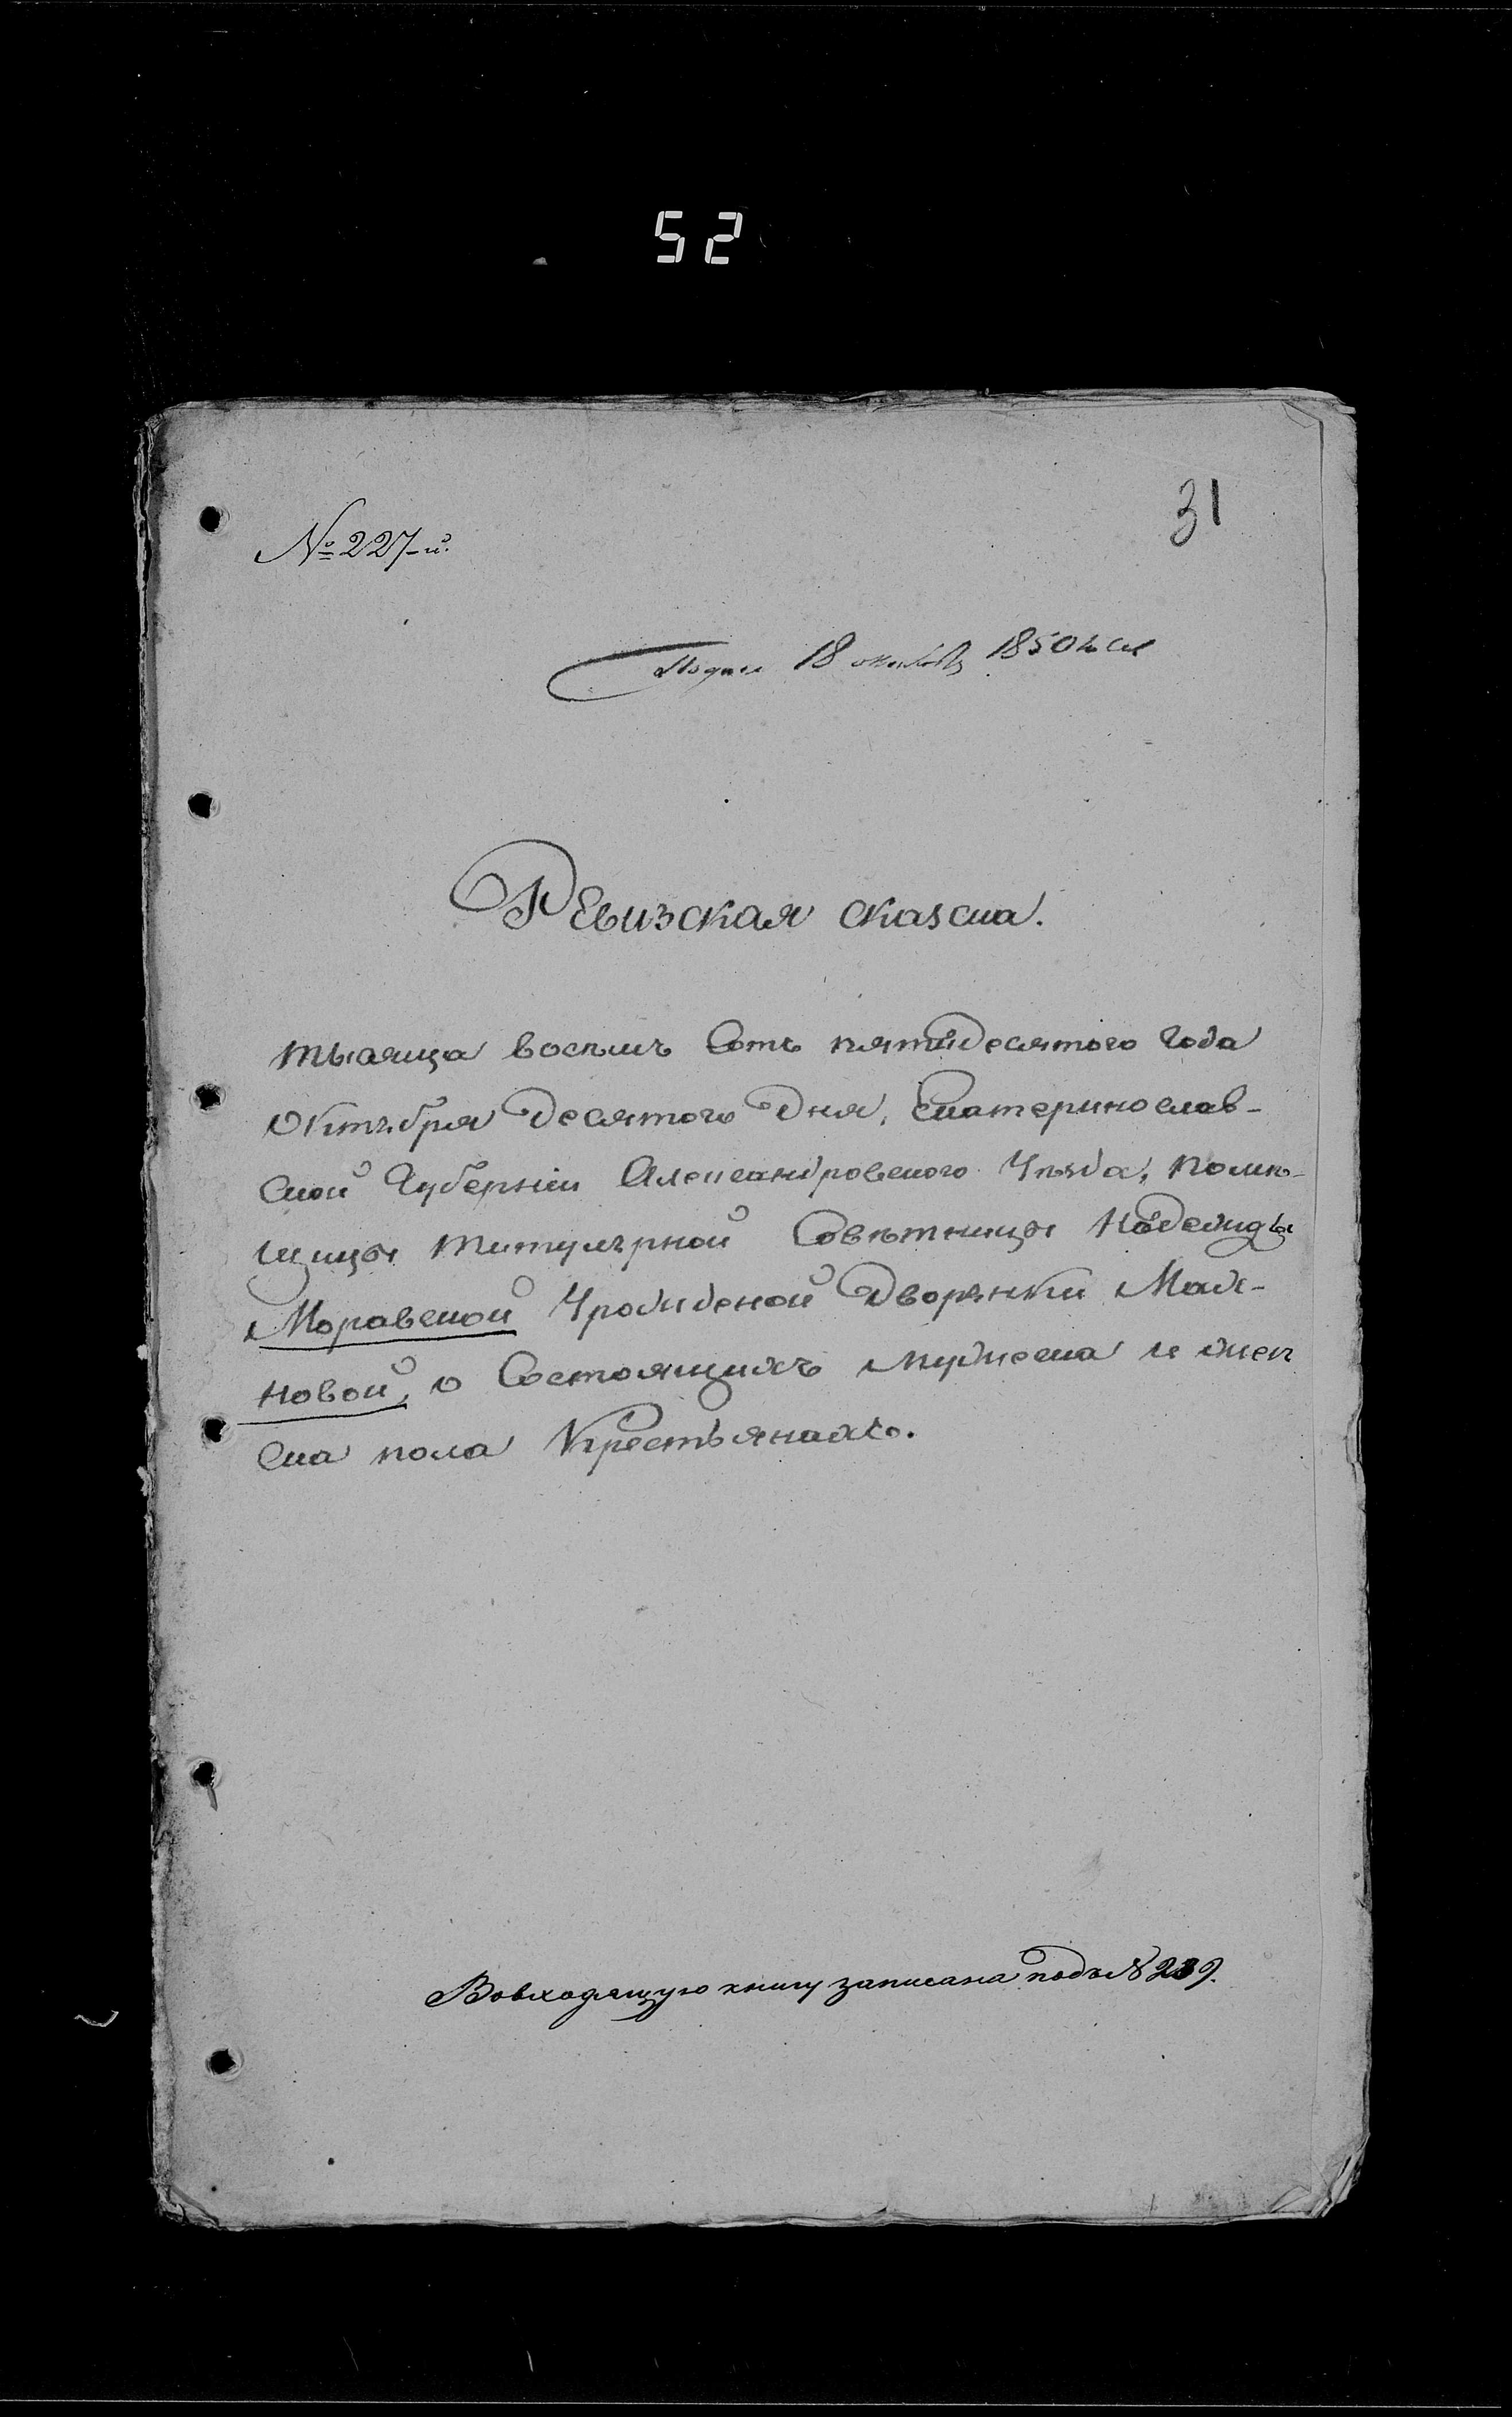 52
31
№ 227-й.
18 октября 1850 года
Ревизская сказка.
тысяща восемь сотъ пятидесятого года
Октября десятого дня, Екатеринослав-
ской Губерніи Александровского Уѣзда, помѣ-
щицы титулярной Совѣтницы Надежды
Моравской Урожденой Дворянки Мал-
новой, о Состоящихъ мужеска и жен
ска пола Крестьянахъ.
Вовходящую книгу записана подъ № 239.